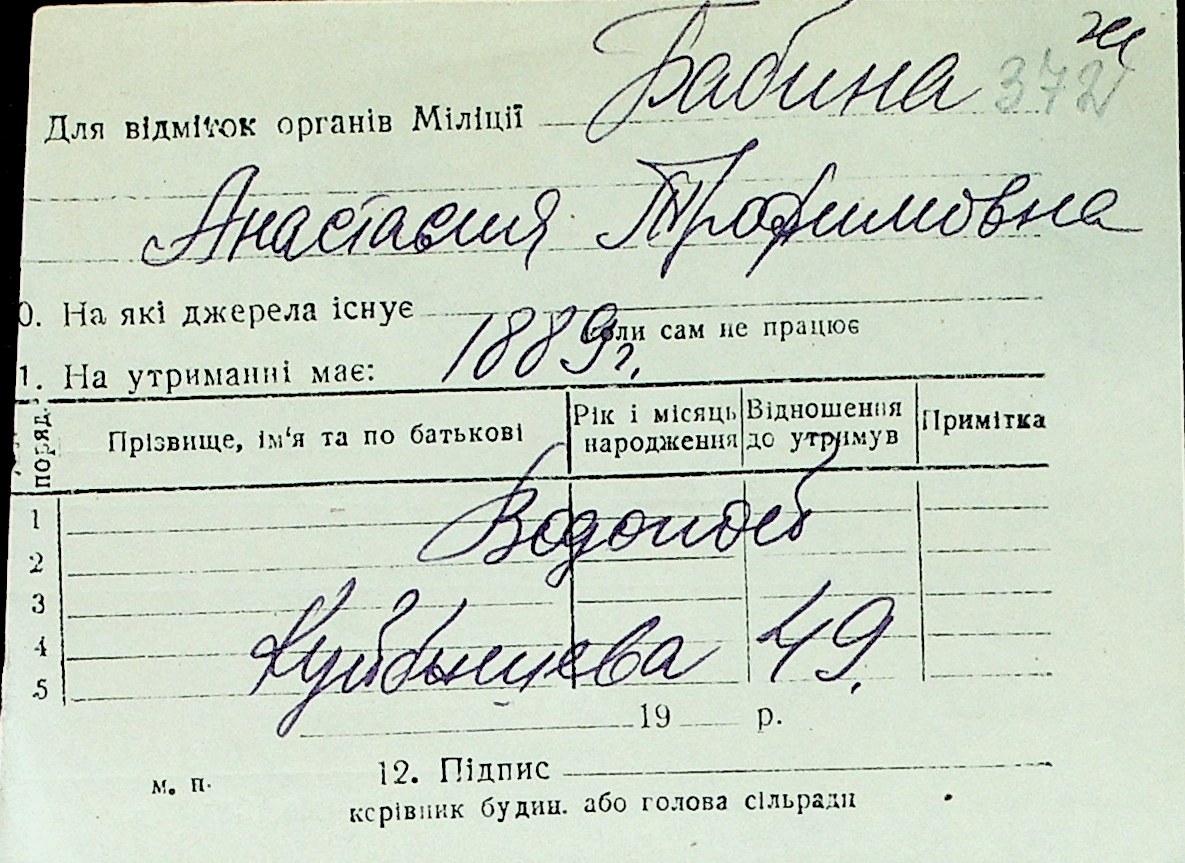 Для відміток органів Міліції Бабина 372
Анастасия Трофимовна
0. На які джерела існує
1889 г. коли сам не працює
1. На утриманні має:
поряд. Прізвище, ім'я та по батькові Рік і місяць народження Відношення до утримув Примітка
1
2 Водопой
3
4 Куйбышева 49.
5
19 р.
м. п. 12. Підпис
керівник будин. або голова сільради